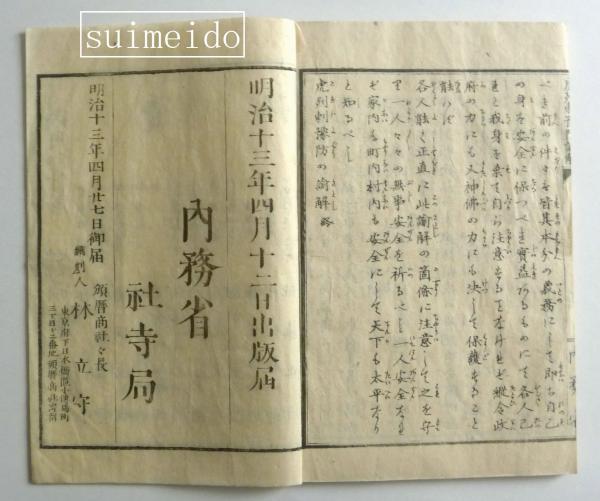 suimeido
べき前の件々を皆其本分の義務にして即ち自己
の身を安全に保つべき實益あるものにて各人己
きと我身を棄て自ら注意せざる
府の力にも又神佛の力にも決して保護すること
能はず
各人能く正直に此諭解の箇條に注意して之を守
り一人々々の無事安全を祈るべし一人安全なれ
ば家内も町内村内も安全にして天下も太平なり
と知るべし
虎列剌豫防の諭解 終
明治十三年四月十二日出版届
內務省
社寺局
明治十三年四月廿七日御届
頒曆商社々長
飜刻人 林立守
東京府下日本橋區